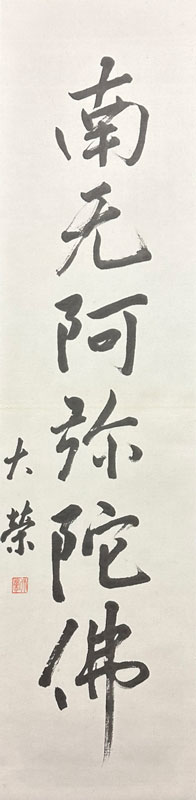 南无阿弥陀佛
大榮